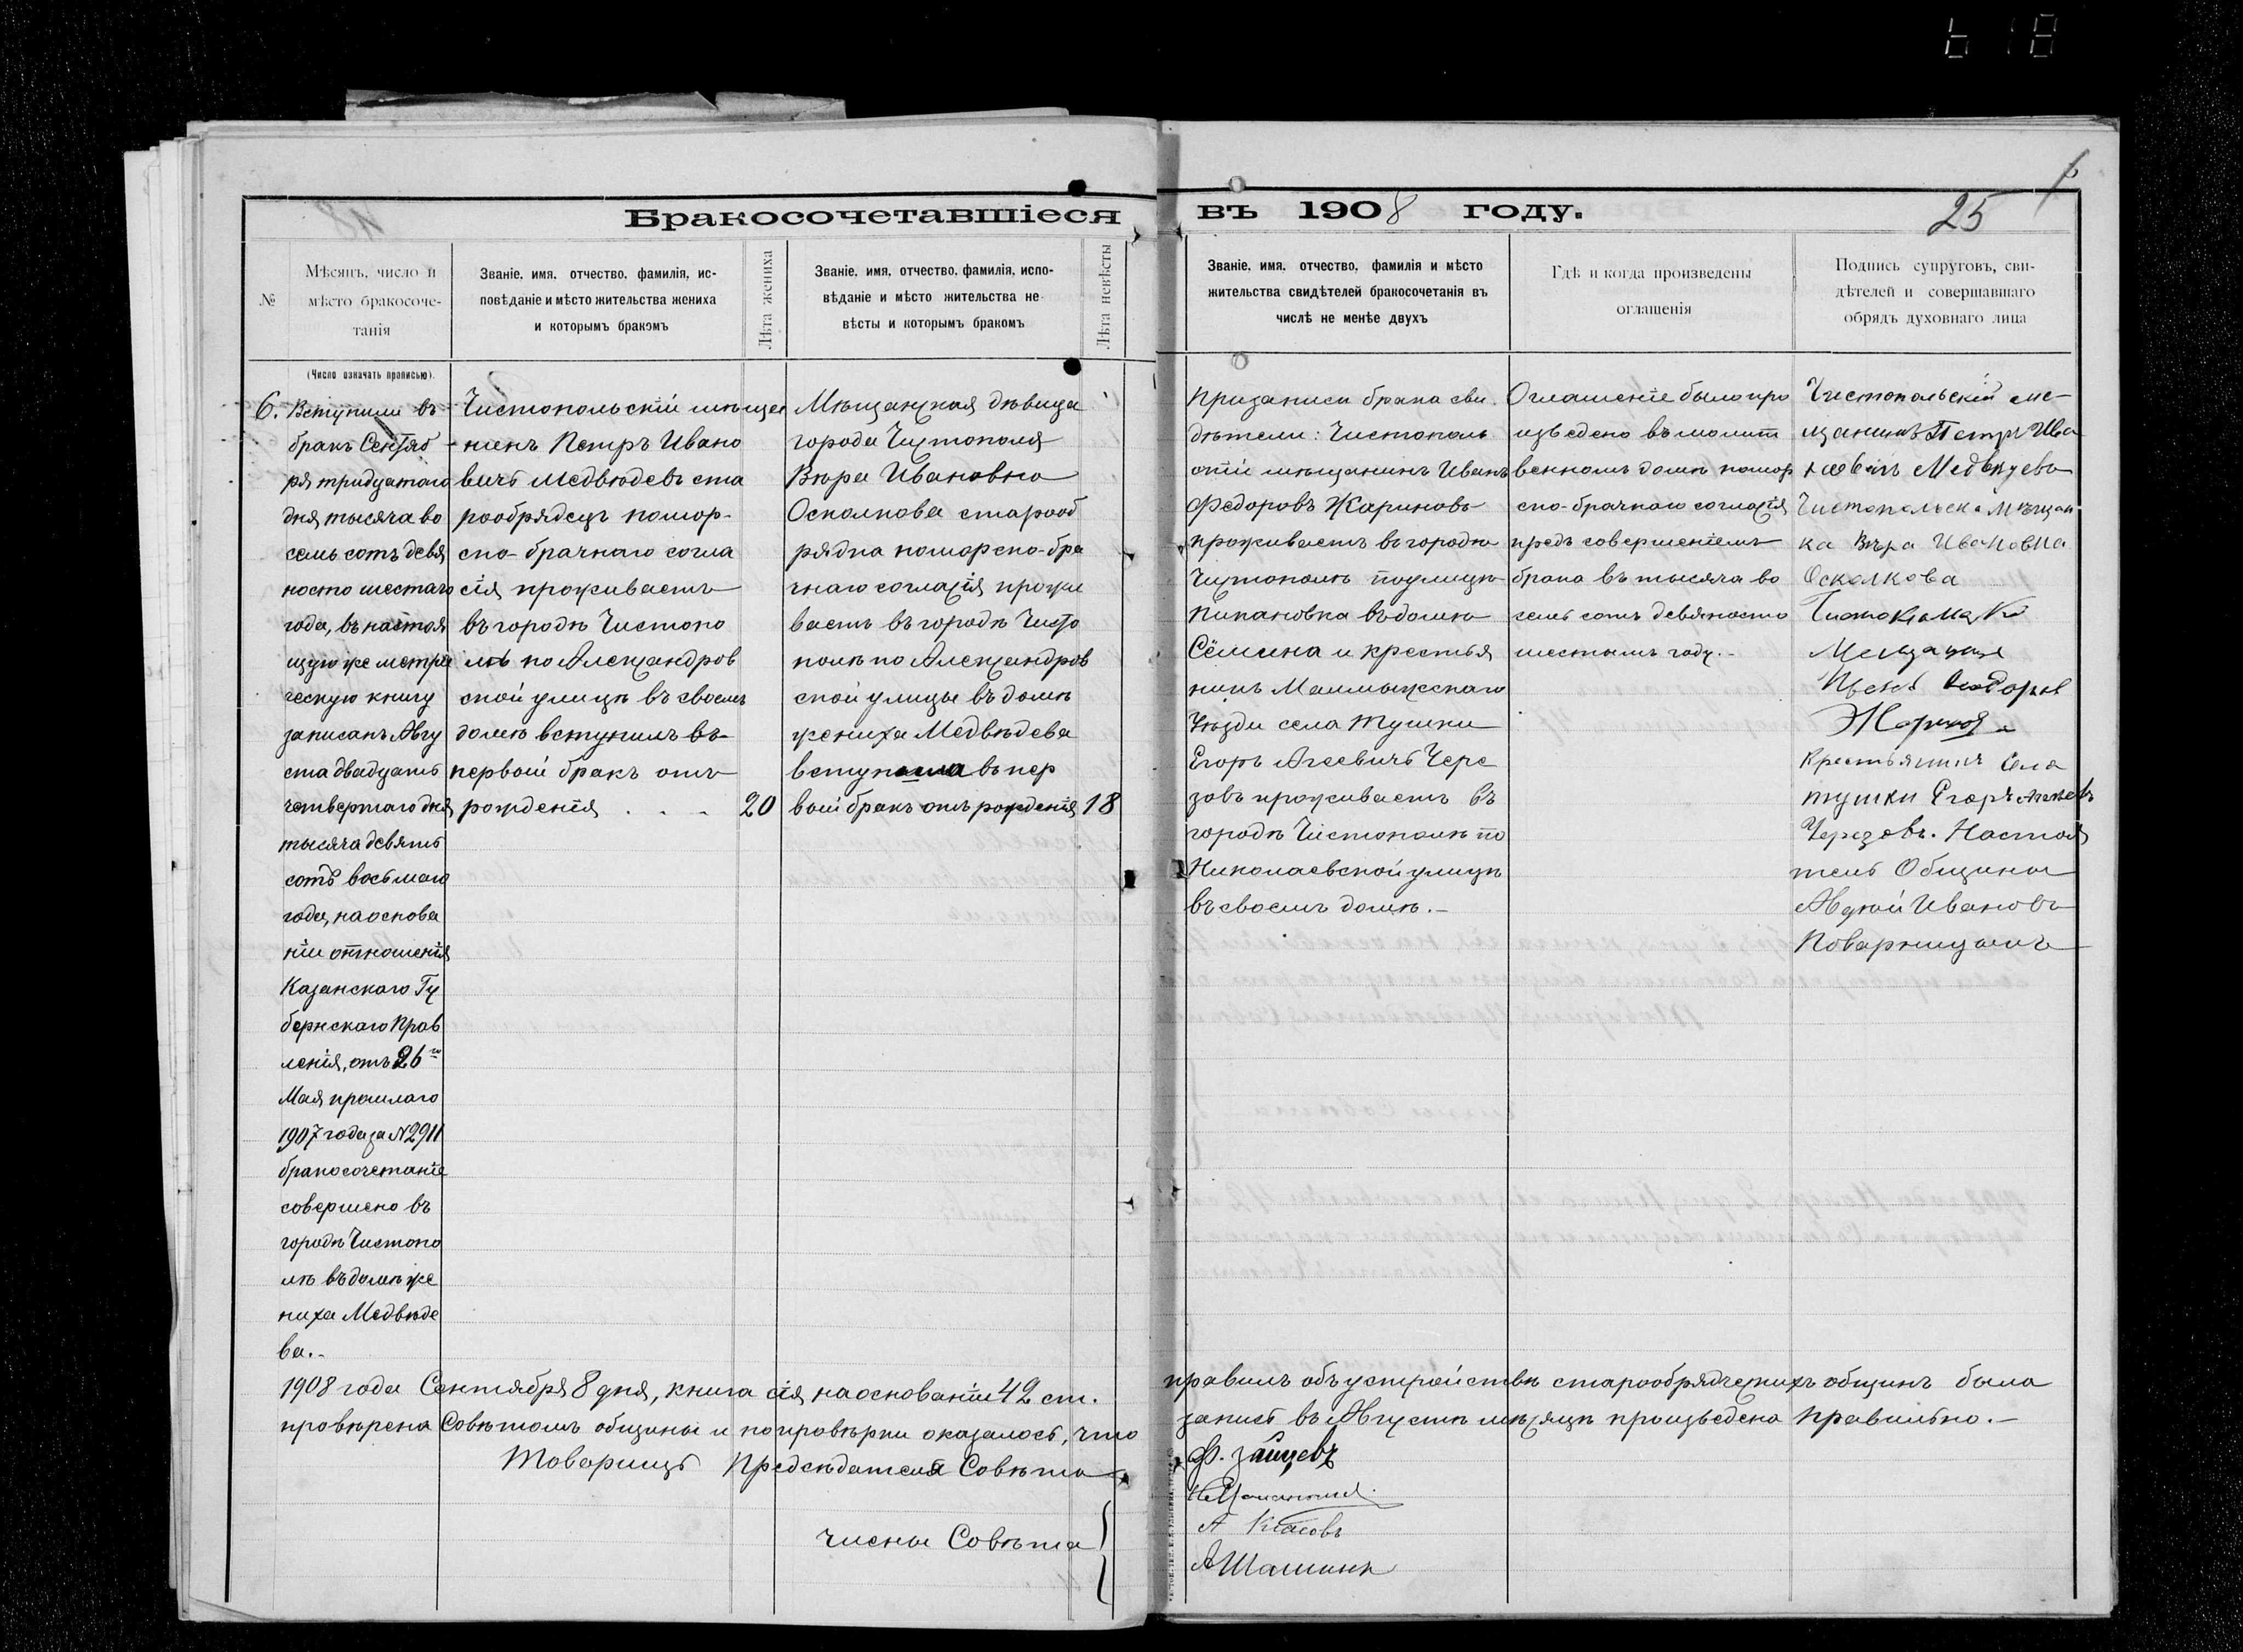 Бракосочетавшіеся въ 1908 году.
25
№
Мѣсяцъ, число и
мѣсто бракосоче-
танія
Званіе, имя, отчество, фамилія, ис-
повѣданіе и мѣсто жительства жениха
и которымъ бракомъ
Лѣта жениха
Званіе, имя, отчество, фамилія, испо-
вѣданіе и мѣсто жительства не-
вѣсты и которымъ бракомъ
Лѣта невѣсты
Званіе, имя, отчество, фамилія и мѣсто
жительства свидѣтелей бракосочетанія въ
числѣ не менѣе двухъ
Гдѣ и когда произведены
оглашенія
Подпись супруговъ, сви-
дѣтелей и совершавшаго
обрядъ духовнаго лица
(Число означать прописью).
6. Вступили въ
бракъ Сентяб
ря тридцатаго
дня тысяча во
семь сотъ девя
носто шестаго
года, въ настоя
щую же метри
ческую книгу
записанъ Авгу
ста двадцать
четвертаго дня
тысяча девять
сотъ восьмаго
года, на основа
ніи отношенія
Казанскаго Гу
бернскаго Прав
ленія, отъ 26го
Мая прошлаго
1907 года за №2911
бракосочетаніе
совершено въ
городѣ Чистопо
лѣ въ домѣ же
ниха Медвѣде
ва.-
Чистопольскій мѣща
нинъ Петръ Ивано
вичъ Медвѣдевъ ста
рообрядецъ помор-
ско-брачнаго согла
сія проживаетъ
въ городѣ Чистопо
лѣ по Александров
ской улицѣ въ своемъ
домѣ вступилъ въ
первый бракъ отъ
рожденія . . . 20
Мѣщанская дѣвица
города Чистополя
Вѣра Ивановна
Осколкова старооб
рядка поморско-бра
чнаго согласія прожи
ваетъ въ городѣ Чисто
полѣ по Александров
ской улицы въ домѣ
жениха Медвѣдева
вступила въ пер
вый бракъ отъ рожденія 18
При записи брака сви
дѣтели: Чистополь
скій мѣщанинъ Иванъ
Федоровъ Жариновъ
проживаетъ въ городѣ
Чистополѣ по улицѣ
въ домѣ
Сёмина и крестья
нинъ Мамадышскаго
Уѣзда села Тушки
Егоръ Агеевичъ Чере
зовъ проживаетъ въ
городѣ Чистополѣ по
Николаевской улицѣ
въ своемъ домѣ.-
Оглашеніе было про
изведено въ молит
венномъ домѣ помор
ско-брачнаго согласія
предъ совершеніемъ
брака въ тысяча во
семь сотъ девяносто
шестомъ году.-
Чистопольскій ме-
щанинъ Петръ Ива
новичъ Медведевъ
Чистопольска Мѣщан
ка Вѣра Ивановна
Осколкова
Мещанинъ
Федоровъ
Жариновъ
Крестьянинъ села
тушки Егоръ Агеевъ
Черезовъ. Настоя
тель Общины
Авдѣй Ивановъ
1908 года Сентября 8 дня, книга сія на основаніи 42 ст. правилъ объ устройствѣ старообрядческихъ общинъ была
провѣрена Совѣтомъ общины и по провѣрки оказалось, что запись въ Августѣ мѣсяцѣ произведена правильно.-
Товарищъ Предсѣдателя Совѣта Ф. Зайцевъ
Члены Совѣта
А Шашинъ